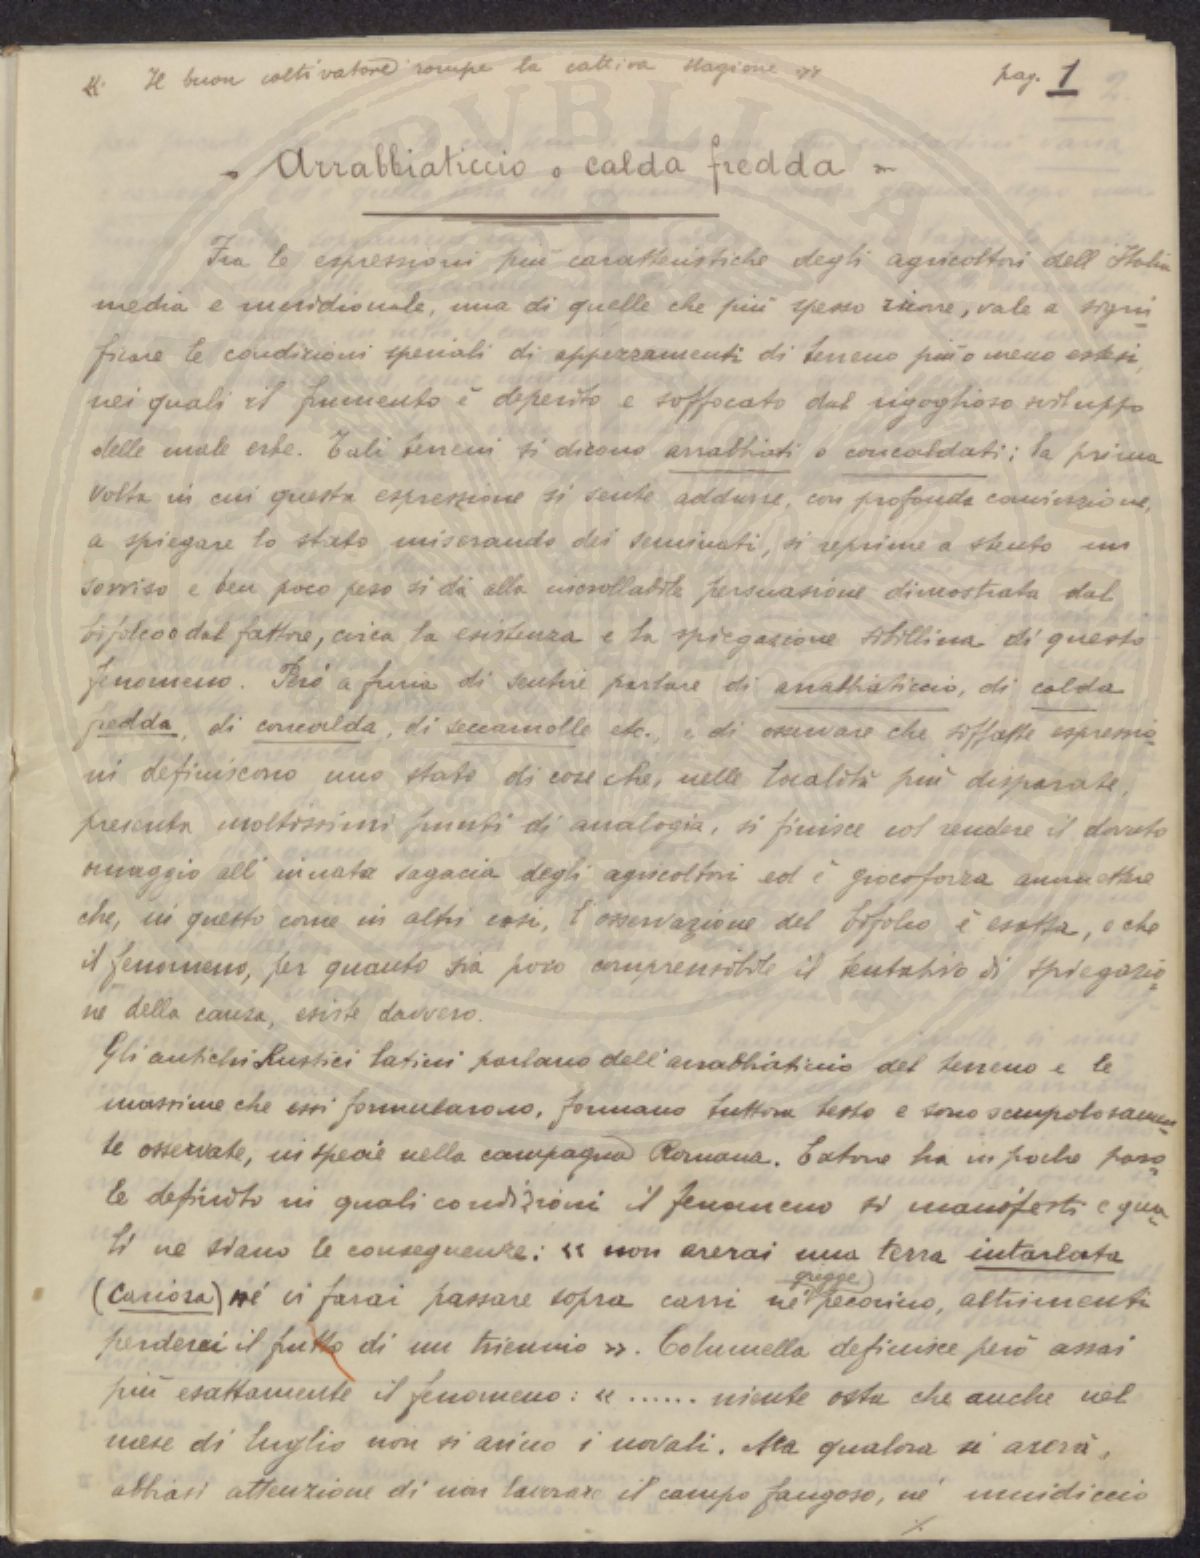 « Il buon coltivatore rompe la cattiva stagione »
pag. 1 2.
- Arrabbiaticcio o calda fredda -
Fra le espressioni più caratteristiche degli agricoltori dell'Italia
media e meridionale, una di quelle che più spesso ricorre, vale a signi-
ficare le condizioni speciali di appezzamenti di terreno più o meno estesi,
nei quali il frumento è deperito e soffocato dal rigoglioso sviluppo
delle male erbe. Tali terreni si dicono arrabbiati o concaldati; la prima
volta in cui questa espressione si sente addurre, con profonda convinzione,
a spiegare lo stato miserando dei seminati, si reprime a stento un
sorriso e ben poco peso si dà alla incrollabile persuasione dimostrata dal
bifolco o dal fattore, circa la esistenza e la spiegazione sibillina di questo
fenomeno. Però a furia di sentire parlare di arrabbiaticcio, di calda
fredda, di concalda, di seccamolle etc., e di osservare che siffatte espressio-
ni definiscono uno stato di cose che, nelle località più disparate,
presenta moltissimi punti di analogia, si finisce col rendere il dovuto
omaggio all'innata sagacia degli agricoltori ed è giocoforza ammettere
che, in questo come in altri casi, l'osservazione del bifolco è esatta, e che
il fenomeno, per quanto sia poco comprensibile il tentativo di spiegazio-
ne della causa, esiste davvero.
Gli antichi Rustici latini parlano dell'arrabbiaticcio del terreno e le
massime che essi formularono, formano tuttora testo e sono scrupolosamen-
te osservate, in specie nella campagna Romana. Catone ha in poche paro-
le definito in quali condizioni il fenomeno si manifesti e qua-
li ne siano le conseguenze: « non arerai una terra intarlata
(cariosa) né vi farai passare sopra carri né gregge) pecorino, altrimenti
perderai il frutto di un triennio ». Columella definisce però assai
più esattamente il fenomeno: « ...... niente osta che anche nel
mese di luglio non si arino i novali. Ma qualora si arerà,
abbiasi attenzione di non lavorare il campo fangoso, né umidiccio
./.